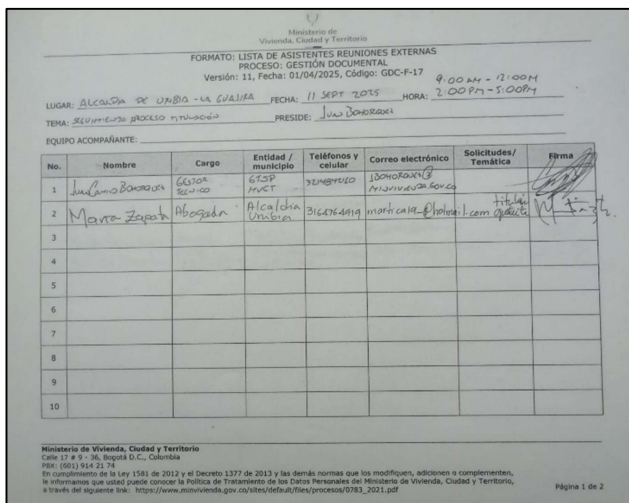 Ministerio de
Vivienda, Ciudad y Territorio
FORMATO: LISTA DE ASISTENTES REUNIONES EXTERNAS
PROCESO: GESTIÓN DOCUMENTAL
Versión: 11, Fecha: 01/04/2025, Código: GDC-F-17
9:00 AM - 12:00M
LUGAR: ALCALDIA DE URIBIA - LA GUAJIRA FECHA: 11 SEPT 2025 HORA: 2:00 PM - 5:00PM
TEMA: SEGUIMIENTO PROCESO TITULACIÓN PRESIDE: JUAN
EQUIPO ACOMPAÑANTE:
No. Nombre Cargo Entidad / municipio Teléfonos y celular Correo electrónico Solicitudes/ Temática Firma
1 GESTOR TECNICO GTSP MVCT MINVIVIENDA.GOV.CO
2 Marta Zapata Abogada Alcaldía Uribia 3164764919 @hotmail.com titular
3
4
5
6
7
8
9
10
Ministerio de Vivienda, Ciudad y Territorio
Calle 17 # 9 - 36, Bogotá D.C., Colombia
PBX: (601) 914 21 74
En cumplimiento de la Ley 1581 de 2012 y el Decreto 1377 de 2013 y las demás normas que los modifiquen, adicionen o complementen,
le informamos que usted puede conocer la Política de Tratamiento de los Datos Personales del Ministerio de Vivienda, Ciudad y Territorio,
a través del siguiente link: https://www.minvivienda.gov.co/sites/default/files/procesos/0783_2021.pdf
Página 1 de 2